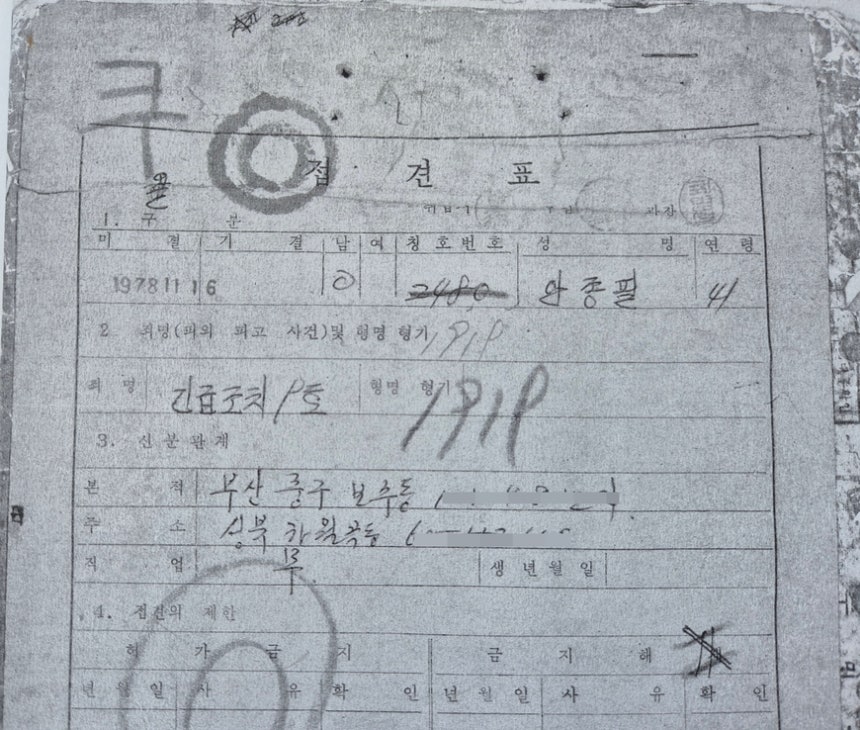 쿠
접 견 표
과장
1. 구 분
미 결 기 결 남 여 칭호번호 성 명 연 령
1978 11 16 0 2480 안종필 41
2 죄명(피의 피고 사건)및 형명 형기 1919
죄 명 긴급조치 9호 형명 형기 1919
3. 신분관계
본 적 부산 중구 보수동
주 소 성북 하월곡동
직 업 무 생년월일
4. 접견의 제한
허 가 금 지 금 지 해
년 월 일 사 유 확 인 년 월 일 사 유 확 인